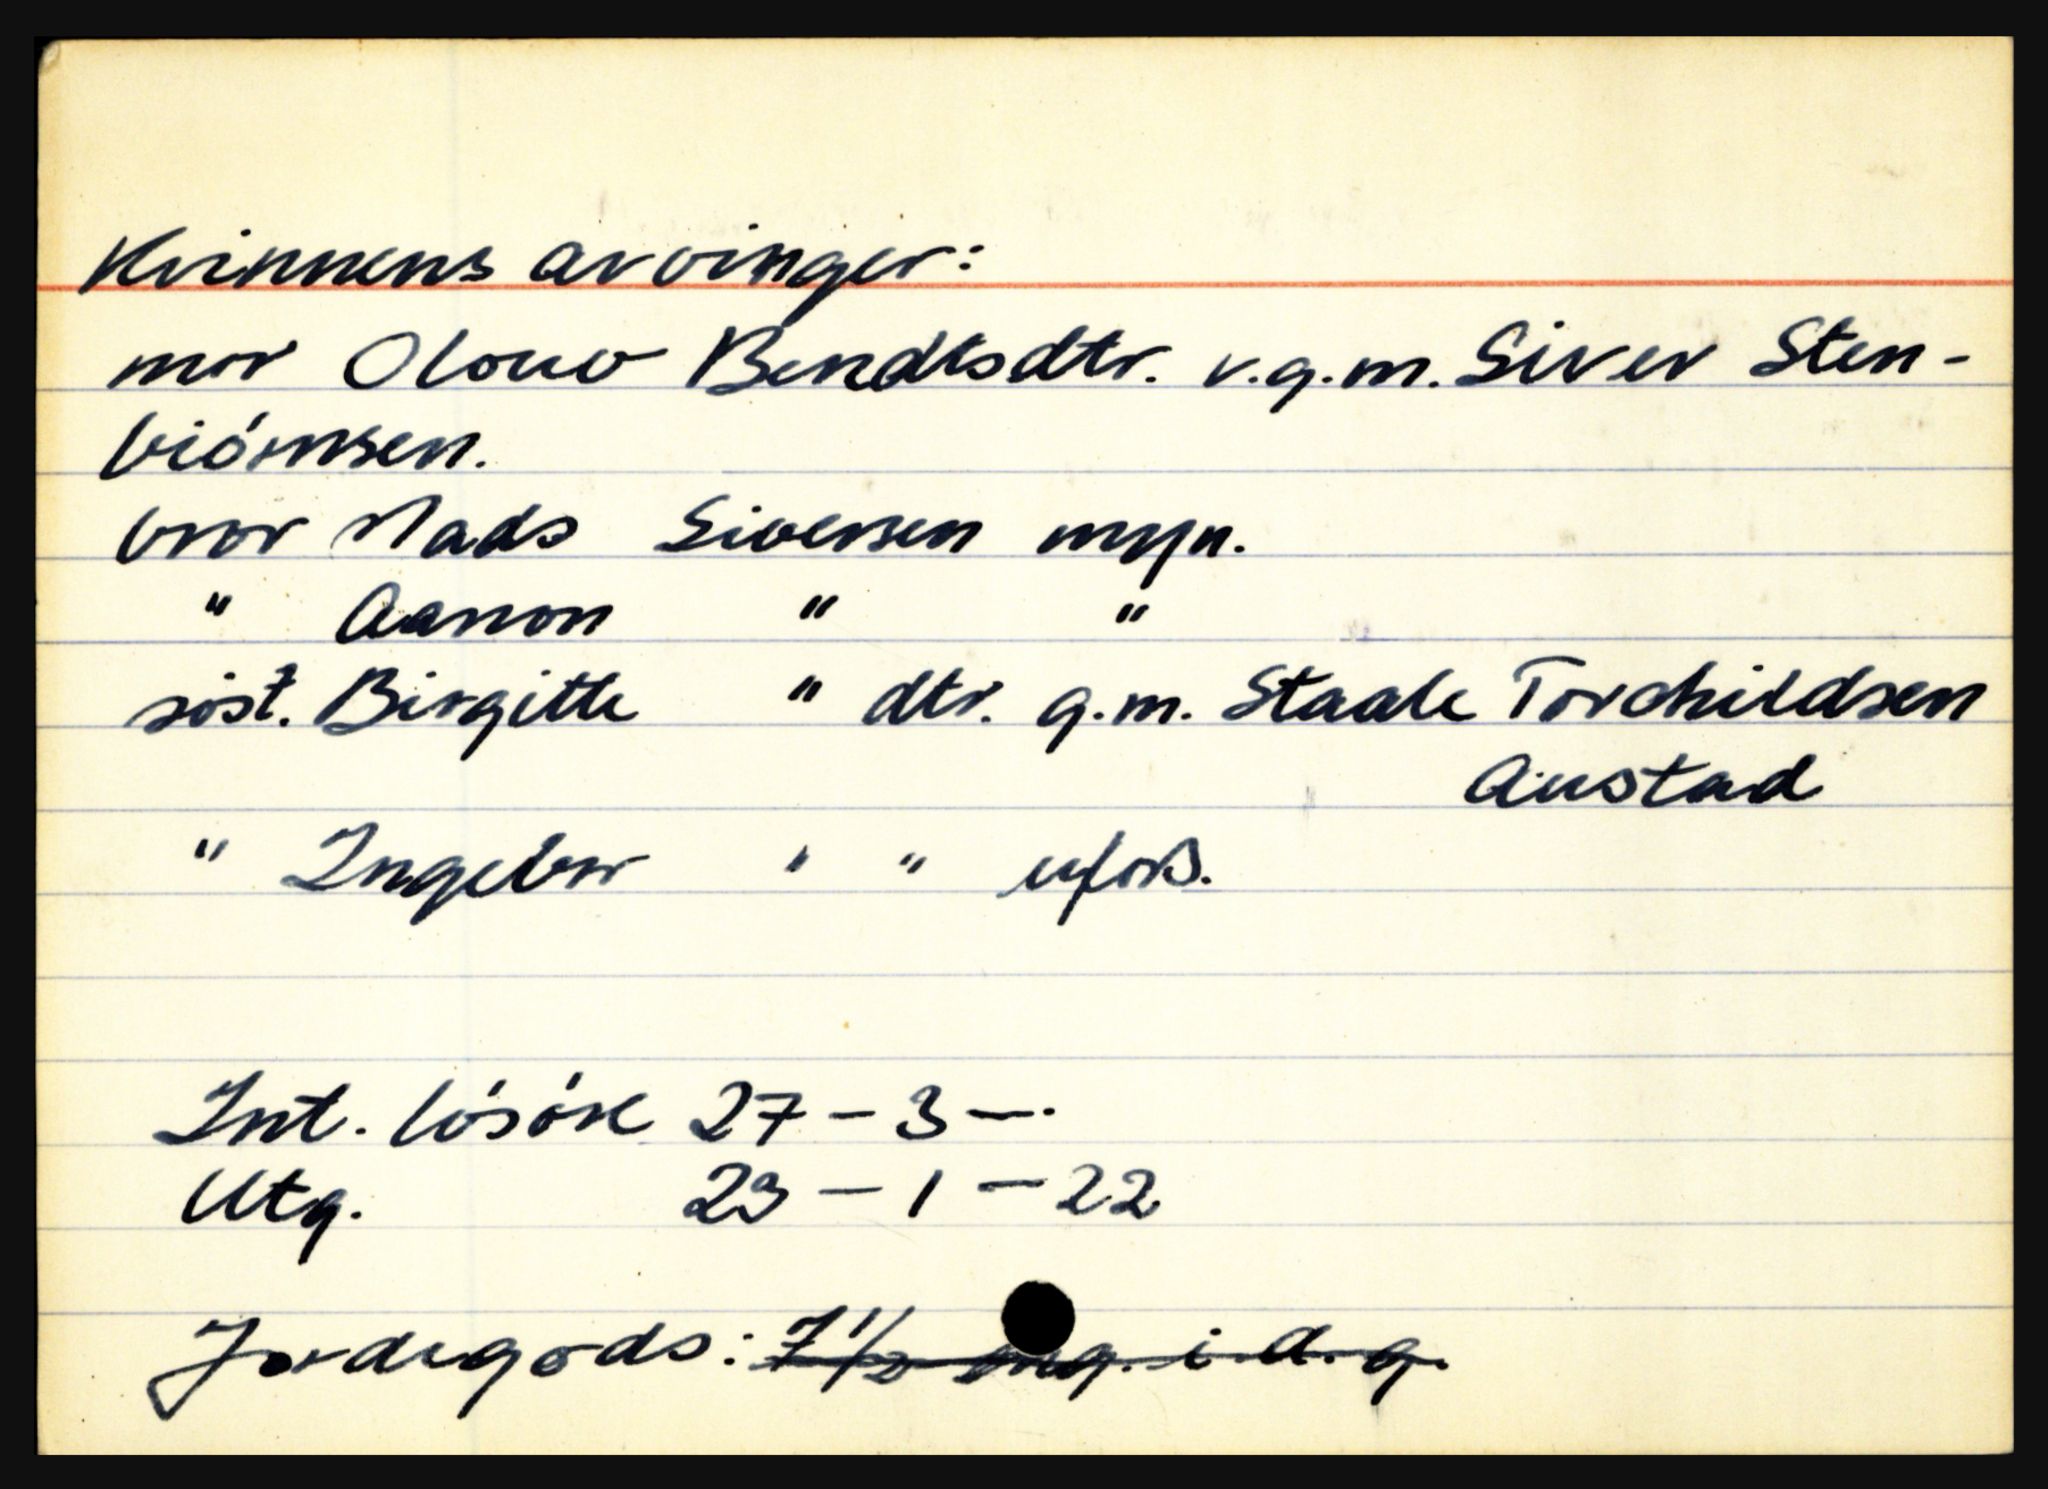 Kvinnens arvinger:
mor Olouv Bendtsdtr. v.g.m. Siver Sten-
biörnsen.
bror Mads Siversen mynd.
" Aanon " "
söst. Birgitte " dtr. g.m. Staale Torchildsen
Austad
" Ingebor " " ufors.
Int. lösöre 27 - 3 -.
Utg. 23 - 1 - 22
Jordegods: 7 1/2 eng. i d. g.